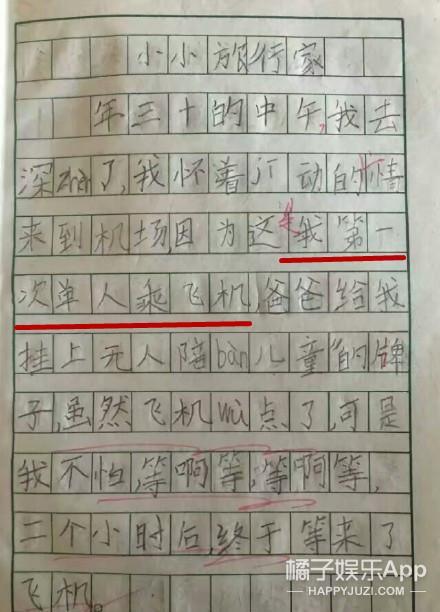 小小旅行家
年三十的中午,我去
深zhèn了,我怀着jī动的情
来到机场,因为这是我第一
次单人乘飞机,爸爸给我
挂上无人陪bàn儿童的牌
子,虽然飞机wù点了,可是
我不怕,等啊等,等啊等,
二个小时后,终于等来了
飞机。
橘子娱乐App
HAPPYJUZI.COM